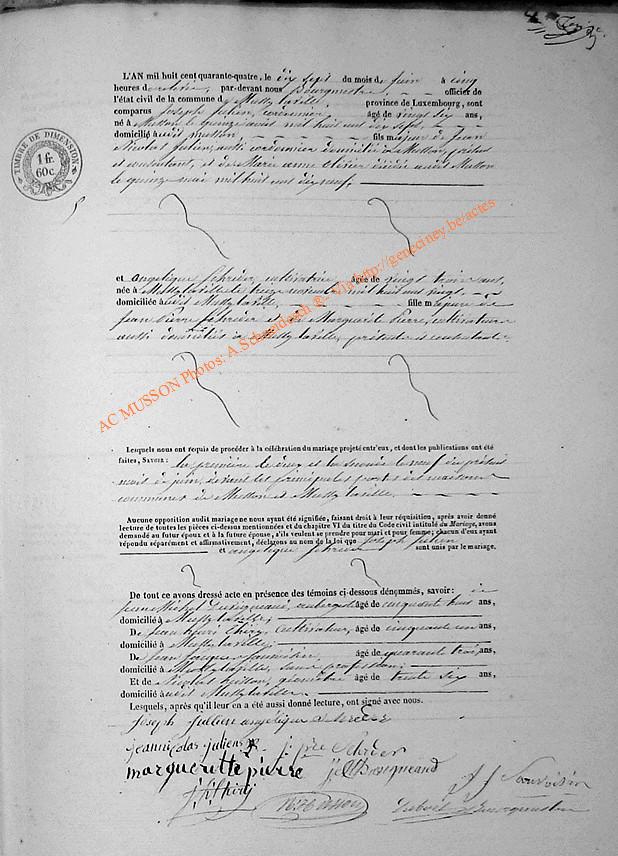 TIMBRE DE DIMENSION
1 fr.
60c.
L'AN mil huit cent quarante-quatre, le dix sept du mois de juin à cinq
heures de par-devant nous Bourgmestre, officier de
l'état civil de la commune de Mussy la ville, province de Luxembourg, sont
comparus Joseph Julien, cordonnier âgé de vingt six ans,
né à Musson le quinze avril mil huit cent dix sept,
domicilié audit Musson, fils majeur de Jean
Nicolas Julien, aussi cordonnier domicilié à Musson, présent
et consentant, et de Marie anne décédée audit Musson
le quinze mai mil huit cent dix neuf,
et angelique cultivatrice âgée de vingt trois ans,
née à Mussy la ville le treize mil huit cent vingt
domiciliée audit Mussy la ville, fille majeure de
Jean Pierre et de Marguerite Pierre, cultivateurs
aussi domiciliés à Mussy la ville, présents et consentants
Lesquels nous ont requis de procéder à la célébration du mariage projeté entr'eux, et dont les publications ont été
faites, Savoir : la première le deux et la seconde le neuf du présent
mois de juin, devant les principales portes des maisons
communes de Musson et Mussy la ville,
Aucune opposition audit mariage ne nous ayant été signifiée, faisant droit à leur réquisition, après avoir donné
lecture de toutes les pièces ci-dessus mentionnées et du chapitre VI du titre du Code civil intitulé du Mariage, avons
demandé au futur époux et à la future épouse, s'ils veulent se prendre pour mari et pour femme; chacun d'eux ayant
répondu séparément et affirmativement, déclarons au nom de la loi que Joseph Julien
et angelique sont unis par le mariage.
De tout ce avons dressé acte en présence des témoins ci-dessous dénommés, savoir: de
Jean Michel aubergiste âgé de cinquante ans,
domicilié à Mussy la ville,
De Jean henri Thiry, Cultivateur, âgé de cinquante un ans,
domicilié à Mussy la ville,
De Jean âgé de quarante trois ans,
domicilié à Mussy la ville, sans profession,
Et de Nicolas âgé de trente six ans,
domicilié audit Mussy la ville.
Lesquels, après qu'il leur en a été aussi donné lecture, ont signé avec nous.
Joseph Jullien angelique
jeannicolas julien
margueritte pierre
AC MUSSON Photos: A.Schmidech ®- Via http://geneciney.be/actes